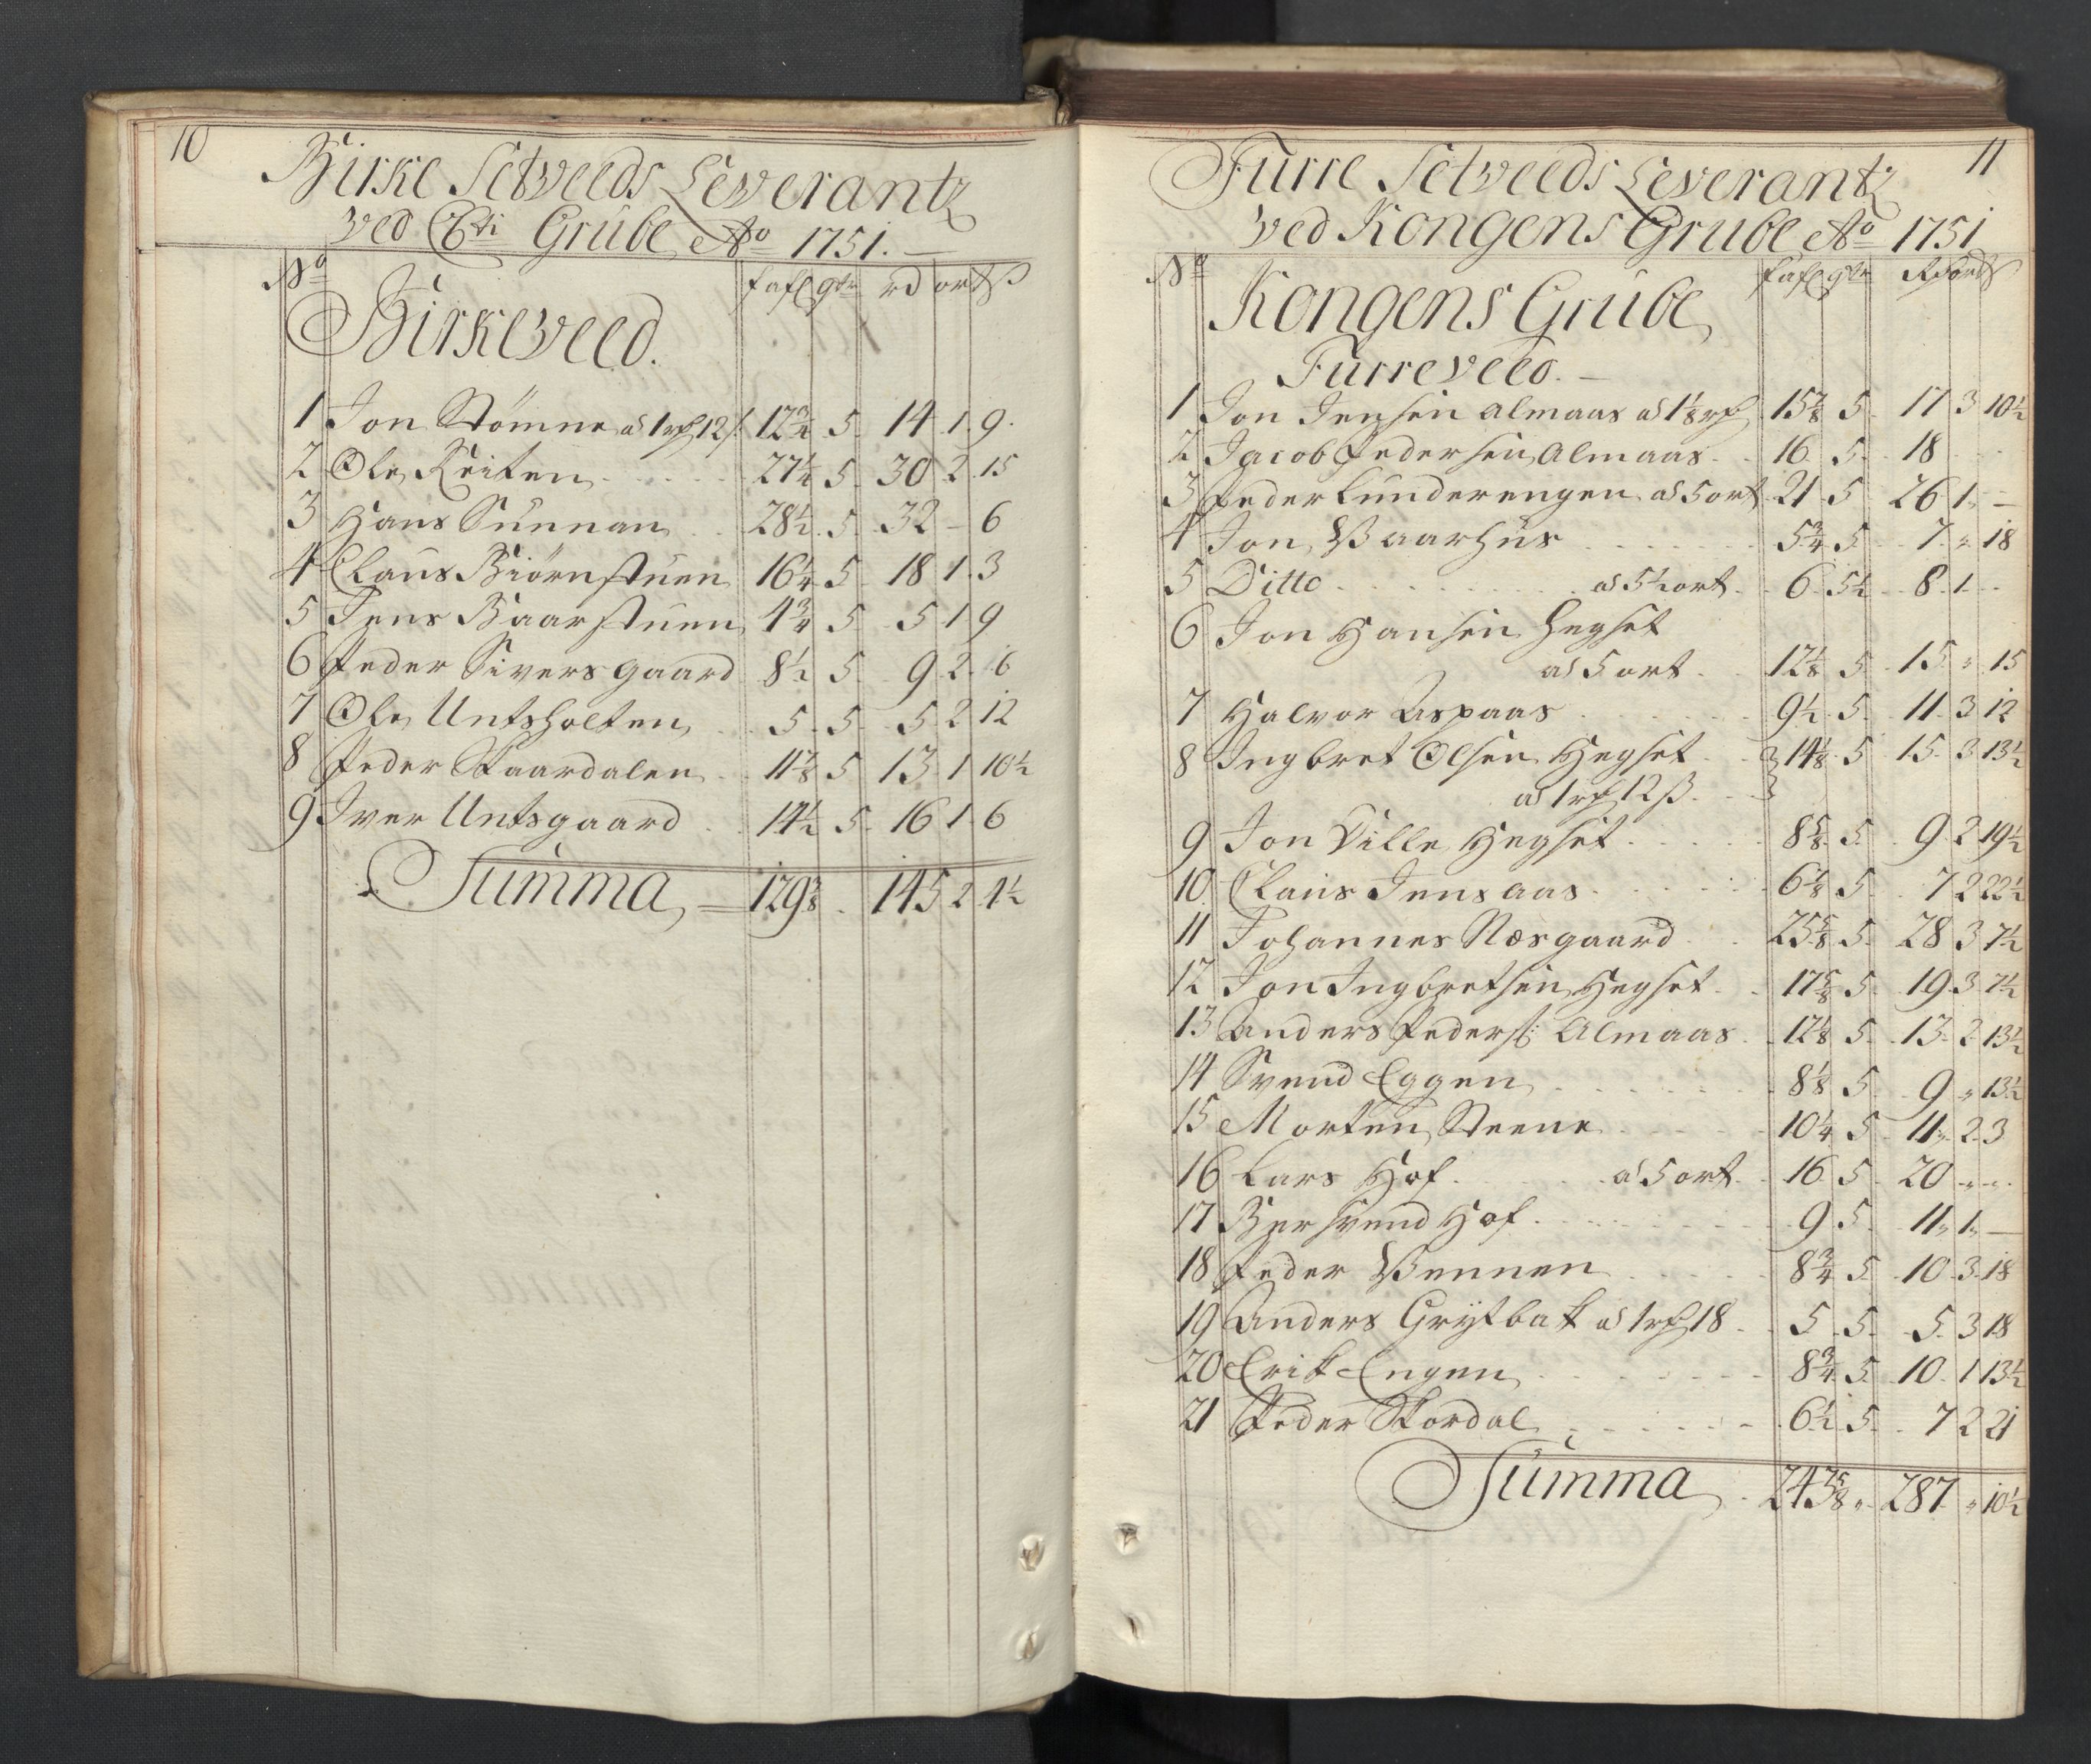 10
Birke Setveeds Leverantz
ved Cbti Grube Ao 1751.
No fafl qtr rd ort ß
Birkeveed.
1 Jon Stömne a 1 rf 12 ß 12 3/4 5 14 1 9
2 Ole Reiten 27 1/4 5 30 2 15
3 Hans Sunnan 28 1/2 5 32 - 6
4 Claus Biörnstuen 16 1/4 5 18 1 3
5 Jens Baarstuen 4 3/4 5 5 1 9
6 Peder Siversgaard 8 1/2 5 9 2 6
7 Ole Untsholten 5 5 5 2 12
8 Peder Skaardalen 11 7/8 5 13 1 10 1/2
9 Iver Untsgaard 14 1/2 5 16 1 6
Summa 129 3/8 145 2 4 1/2
11
Furre Setveeds Leverantz
ved Kongens Grube Ao 1751
No fafl qtr Rd ort ß
Kongens Grube
Furreveed.
1 Jon Jensen Almaas a 1 1/8 rf 15 7/8 5 17 3 10 1/2
2 Jacob Pedersen Almaas 16 5 18
3 Peder Lunderengen a 5 ort 21 5 26 1 -
4 Jon Waarhus 5 3/4 5 7 " 18
5 Ditto a 5 1/2 ort 6 5 1/2 8 1
6 Jon Hansen Hegset
a 5 ort 12 1/8 5 15 " 15
7 Halvor Aspaas 9 1/2 5 11 3 12
8 Ingbret Olsen Hegset 14 1/8 5 15 3 13 1/2
a 1 rf 12 ß
9 Jon Ville Hegset 8 5/8 5 9 2 19 1/2
10 Claus Jensaas 6 7/8 5 7 2 22 1/2
11 Johannes Næsgaard 25 5/8 5 28 3 7 1/2
12 Jon Ingbretsen Hegset 17 5/8 5 19 3 7 1/2
13 Anders Peders: Almaas 12 1/8 5 13 2 13 1/2
14 Svend Eggen 8 1/8 5 9 " 13 1/2
15 Morten Steene 10 1/4 5 11 2 3
16 Lars Hof a 5 ort 16 5 20 " "
17 Bersvend Hof 9 5 11 1 -
18 Peder Wennen 8 3/4 5 10 3 18
19 Anders Grytbak a 1 rf 18 5 5 5 3 18
20 Erik Engen 8 3/4 5 10 1 13 1/2
21 Peder Skordal 6 1/2 5 7 2 21
Summa 243 5/8 " 287 " 10 1/2